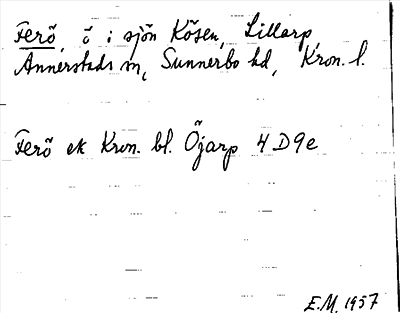 Ferö, ö i sjön Kösen, Lillarp,
Annerstads sn, Sunnerbo hd, Kron. l.
Ferö ek Kron. bl. Öjarp 4D9e
E.M. 1957